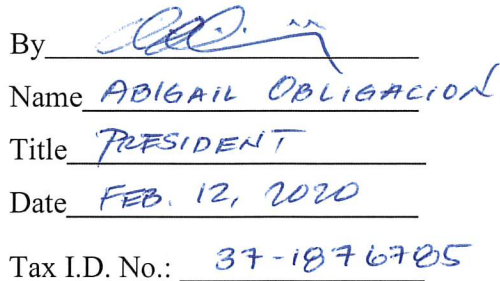 By
Name ABIGAIL OBLIGACION
Title PRESIDENT
Date FEB. 12, 2020
Tax I.D. No.: 37-1876785